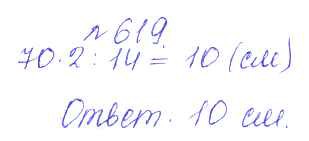 № 619
70 · 2 : 14 = 10 (см)
Ответ. 10 см.